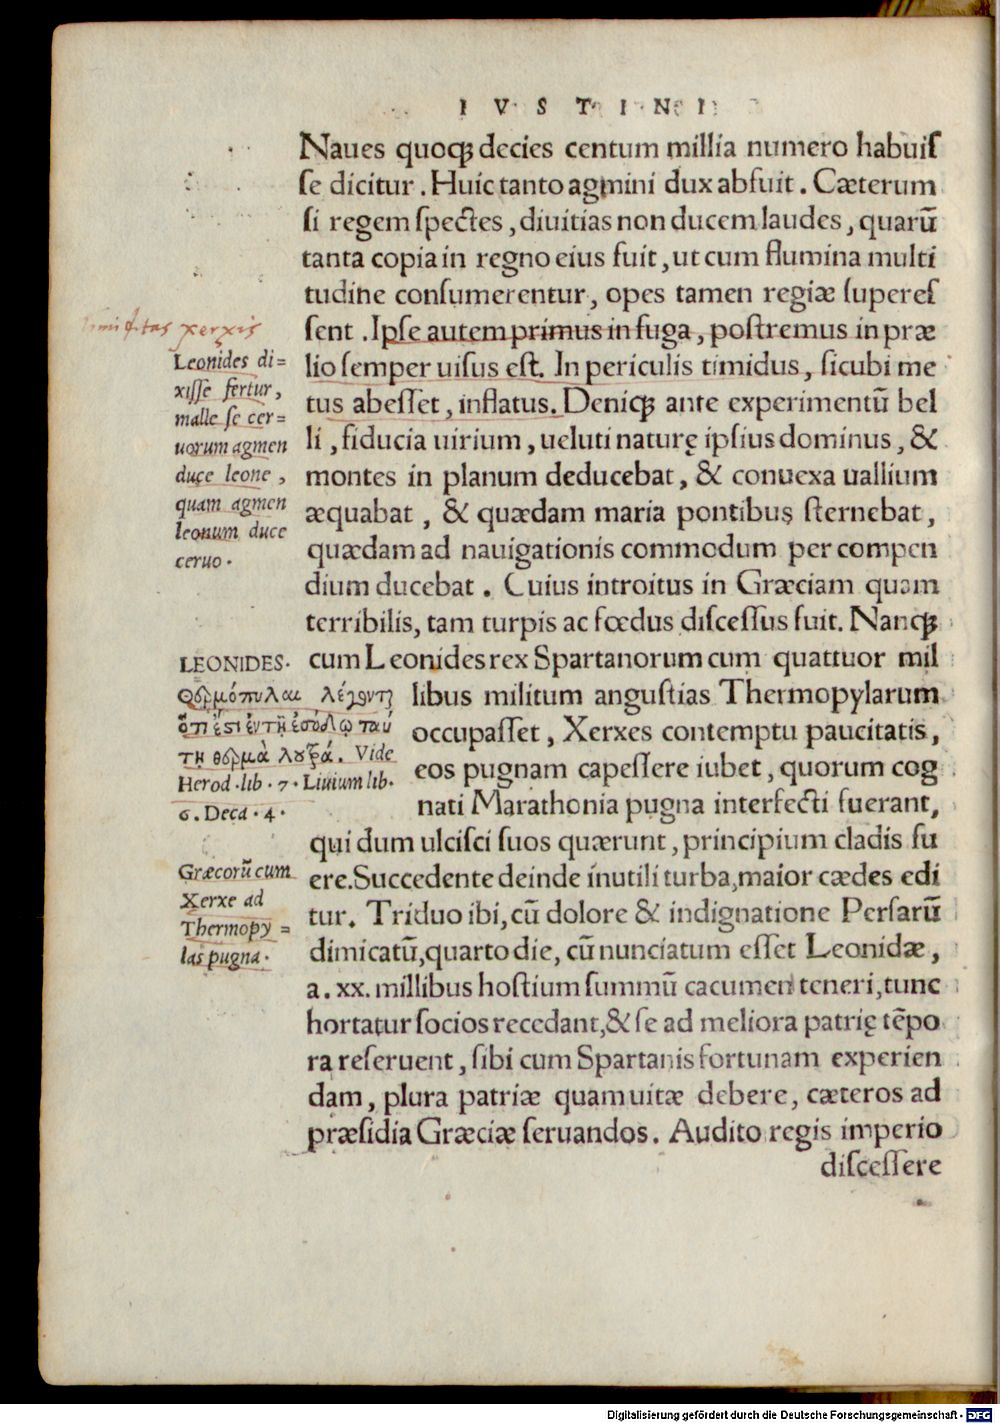 IVSTINI
Naues quoqꝫ decies centum millia numero habuiſ
ſe dicitur. Huic tanto agmini dux abfuit. Cæterum
ſi regem ſpectes, diuitias non ducem laudes, quarū
tanta copia in regno eius fuit, ut cum flumina multi
tudine conſumerentur, opes tamen regiæ ſupereſ
ſent. Ipſe autem primus in fuga, poſtremus in præ
lio ſemper uiſus eſt. In periculis timidus, ſicubi me
tus abeſſet, inflatus. Deniqꝫ ante experimentū bel
li, fiducia uirium, ueluti naturę ipſius dominus, &
montes in planum deducebat, & conuexa uallium
æquabat, & quædam maria pontibus ſternebat,
quædam ad nauigationis commodum per compen
dium ducebat. Cuius introitus in Græciam quam
terribilis, tam turpis ac fœdus diſceſſus fuit. Nanqꝫ
cum Leonides rex Spartanorum cum quattuor mil
libus militum anguſtias Thermopylarum
occupaſſet, Xerxes contemptu paucitatis,
eos pugnam capeſſere iubet, quorum cog
nati Marathonia pugna interfecti fuerant,
qui dum ulciſci ſuos quærunt, principium cladis fu
ere. Succedente deinde inutili turba, maior cædes edi
tur. Triduo ibi, cū dolore & indignatione Perſarū
dimicatū, quarto die, cū nunciatum eſſet Leonidæ,
a. xx. millibus hoſtium ſummū cacumen teneri, tunc
hortatur ſocios recedant, & ſe ad meliora patrię tēpo
ra reſeruent, ſibi cum Spartanis fortunam experien
dam, plura patriæ quam uitæ debere, cæteros ad
præſidia Græciæ ſeruandos. Audito regis imperio
diſceſſere
xerxis
Leonides di=
xiſſe fertur,
malle ſe cer=
uorum agmen
duce leone,
quam agmen
leonum duce
ceruo.
LEONIDES.
Θερμόπυλαι λέγοντη
ὅπ ἐστὶ ἐντῇ ἐσόδῳ ταύ
τῃ θερμὰ λουτρά. Vide
Herod. lib. 7. Liuium lib.
6. Deca. 4.
Græcorū cum
Xerxe ad
Thermopy=
las pugna.
Digitalisierung gefördert durch die Deutsche Forschungsgemeinschaft - DFG